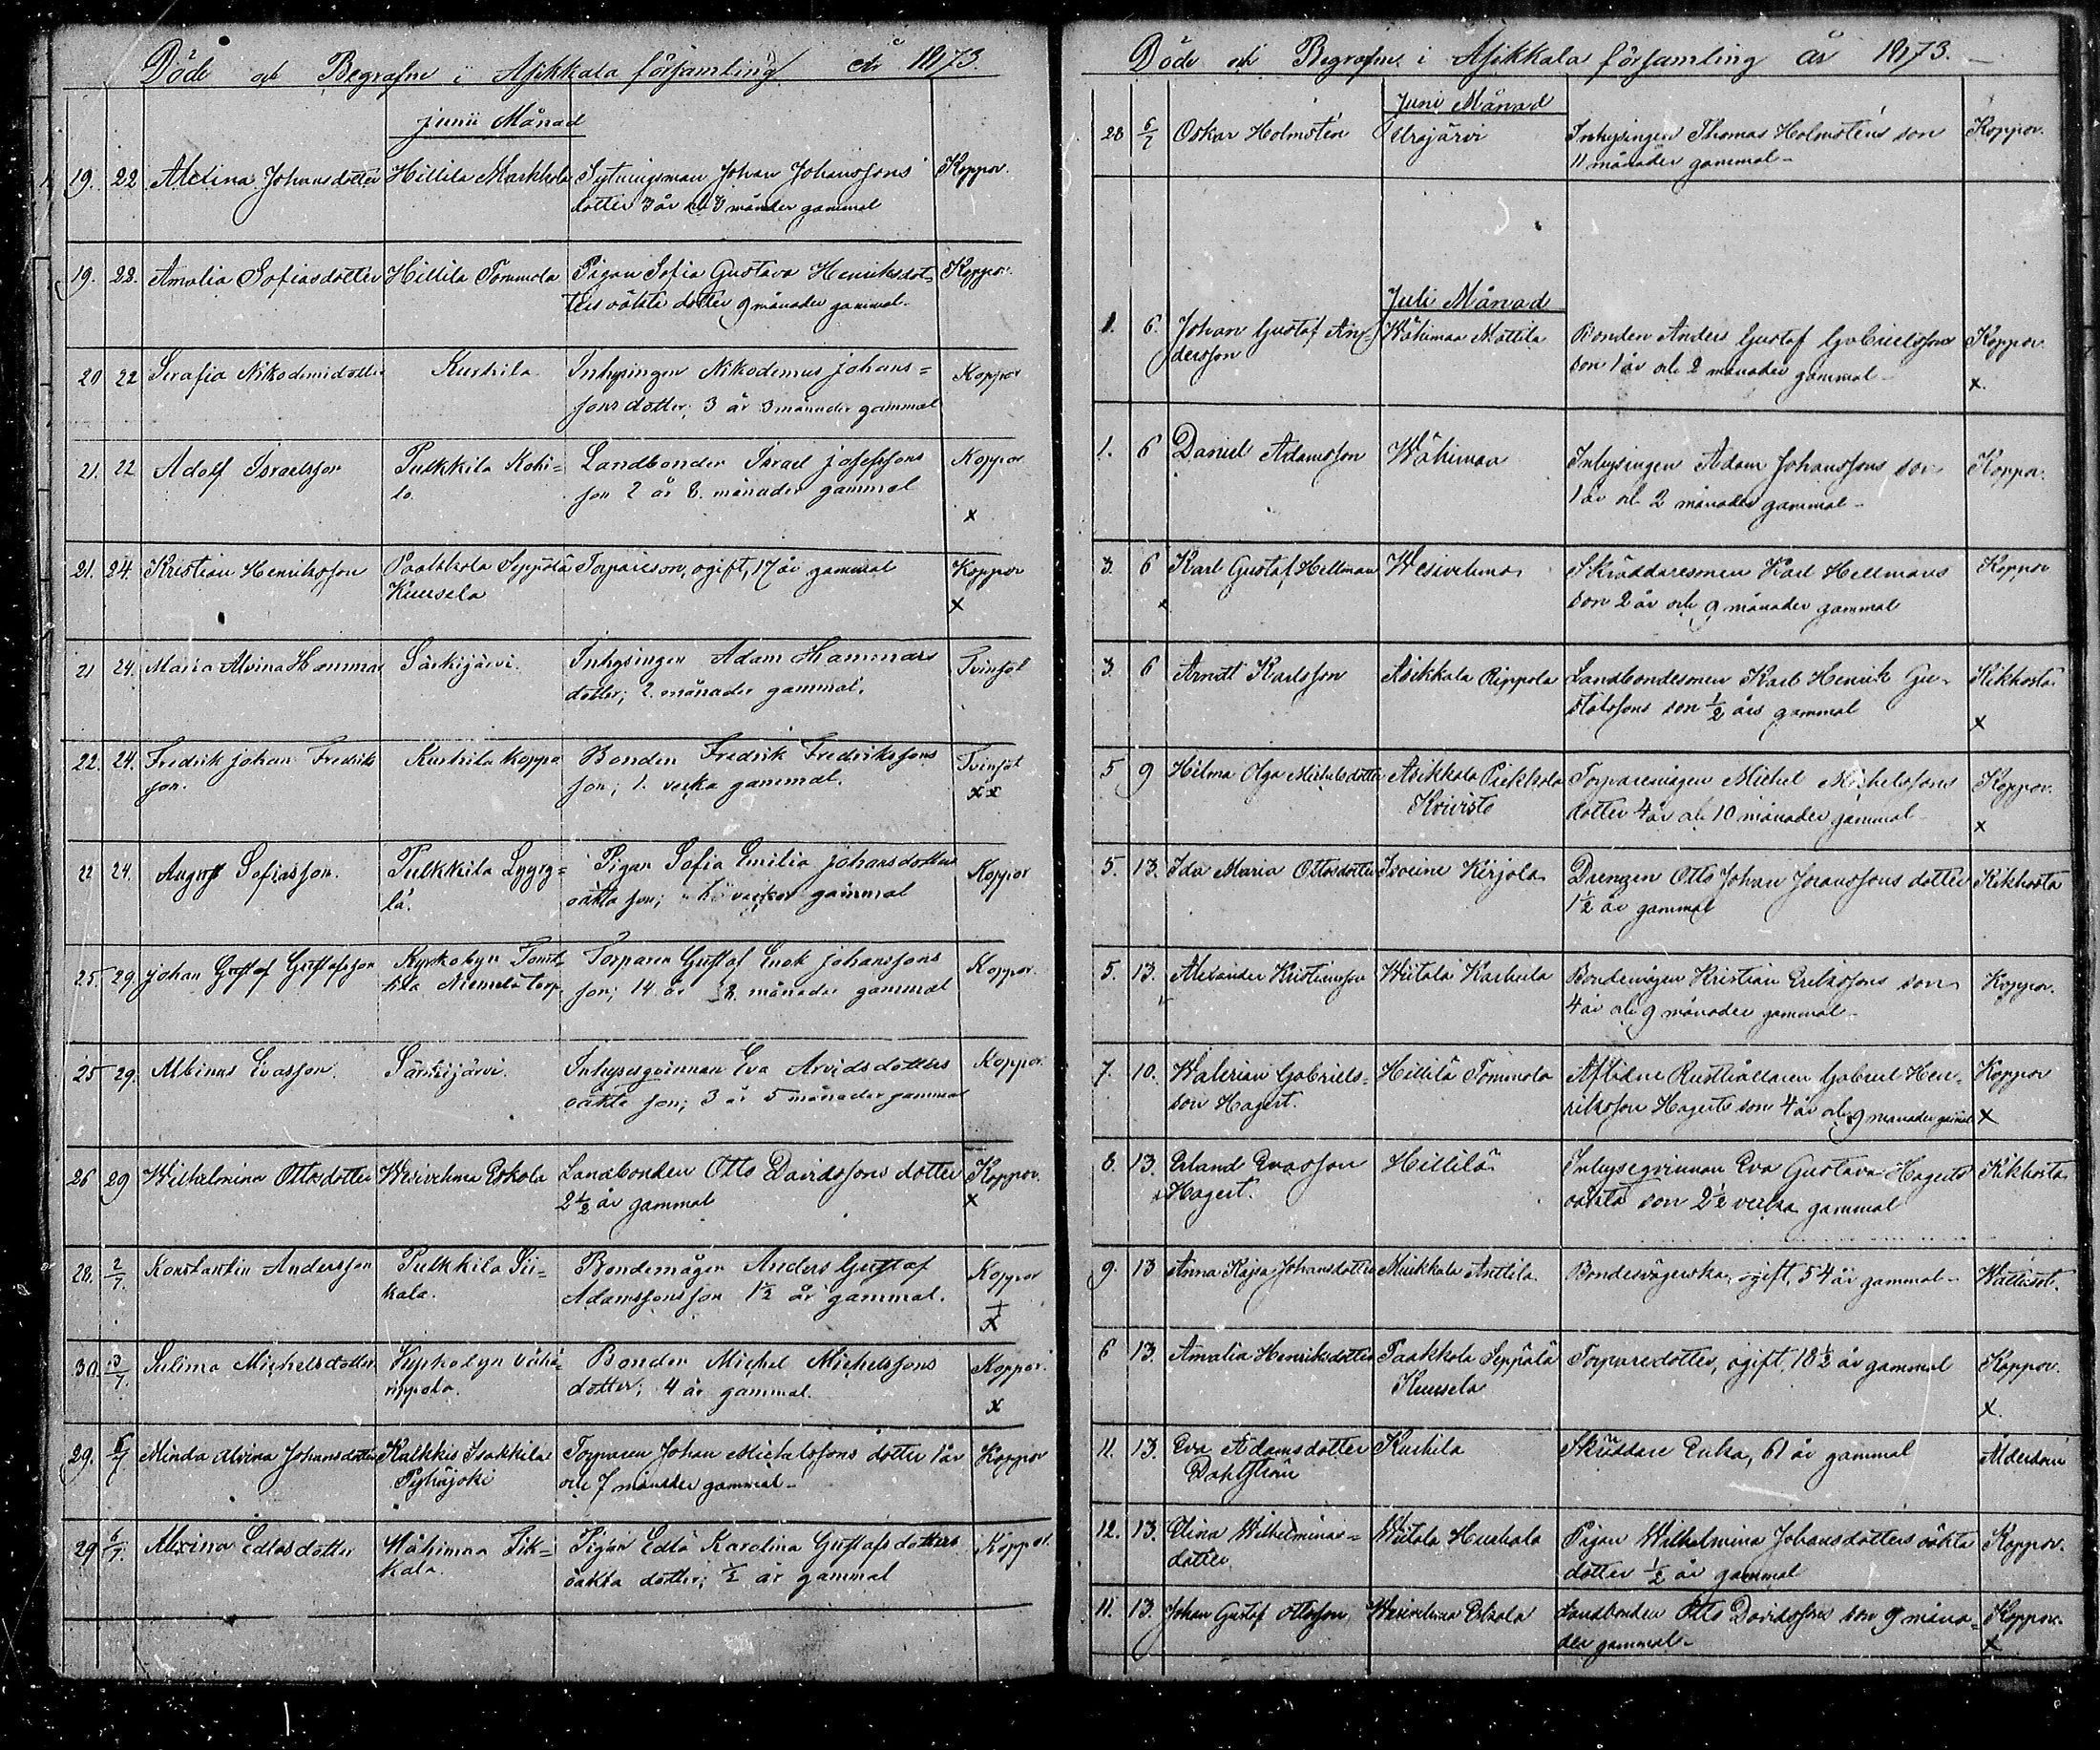 Döde och Begrafne i Asikkala församling år 1873.
junii Månad
19. 22 Alelina Johansdotter Hillilä Markkola Sytningsman Johan Johanssons Koppor.
dotter 3 år och 8 månder gammal
19. 22. Amalia Sofiasdotter Hillilä Tommola Pigan Sofia Gustava Henriksdot- Koppor.
ters oäkta dotter 9 månader gammal.
20 22 Serafia Nikodemidotter Kurhila Inhysingen Nikodemus johans= Koppor
sons dotter; 3 år 3 månader gammal
21. 22 Adolf Israelsson Pulkkila Kohi= Landbonden Israel josefssons Koppor
lo. son 2 år 8. månader gammal
x
21. 24. Kristian Henriksson Paakkola Seppälä Torpareson, ogift, 17 år gammal Koppor
Kuusela x
21 24. Maria Alvina Hammar Särkijärvi. Inhysingen Adam Hammars Tvinsot
dotter; 2. månader gammal.
22. 24. Fredrik johan Fredriks Kurhila Koppo Bonden Fredrik Fredrikssons Tvinsot
son. son; 1. vecka gammal. x x
22 24. August Sofiasson. Pulkkila Lyyty= Pigan Sofia Emilia johansdotters Koppor
lä. oäkta son; veckor gammal
25. 29. johan Gustaf Gustafsson Kyrkobyn Torp Torparen Gustaf Enok johanssons Koppor.
Niemelä torp son; 14. år 8. månader gammal
25 29. Albinus Evasson. Särkijärvi. Inhysesqvinnan Eva Arvidsdotters Koppor.
oäkta son; 3 år 5 månader gammal
26 29 Wilhelmina Ottosdotter Wesivehmaa Eskola Landbonden Otto Davidssons dotter Koppor.
2 1/2 år gammal x
28. 2/7. Konstantin Andersson Pulkkila Sii= Bondemågen Anders Gustaf Koppor
kala. Adamssons son 1 1/2 år gammal. +
x
30. 3/7. Sulima Michelsdotter. Kyrkobyn Vähä= Bonden Michel Michelssons Koppor.
rippola. dotter; 4 år gammal. x
29. 6/7 Minda Alvina Johansdotter Kalkkis Isakkila Torparen Johan Michelssons dotter 1 år Koppor
Pyhäjoki och 7 månader gammal-
29 6/7. Alexina Edlasdotter Wähimaa Pik= Pigan Edla Karolina Gustafsdotters Koppor.
kala. oäkta dotter; 1/2 år gammal
Döde och Begrafne i Asikkala församling år 1873.
Juni Månad
28 6/7 Oskar Holmstén Urajärvi Inhysingen Thomas Holmsténs son Koppor.
11 månader gammal-
Juli Månad
1. 6. Johan Gustaf An= Wähimaa Mattila Bonden Anders Gustaf Gabrielssons Koppor
dersson son 1 år och 2 månader gammal- x.
1. 6 Daniel Adamsson Wähimaa Inhysingen Adam Johanssons son Koppor.
1 år och 2 månader gammal-
3. 6 Karl Gustaf Hellman Wesivehmaa Skräddaresonen Karl Hellmans Koppor
x son 2 år och 9 månader gammal
3. 6 Arndt Karlsson Asikkala Rippola Landbondesonen Karl Henrik Gu- Kikhosta
stafssons son 1/2 års gammal x
5 9 Hilma Olga Michelsdotter Asikkala Piekkola Torparemågen Michel Michelssons Koppor.
Koivisto dotter 4 år och 10 månader gammal x
5. 13. Ida Maria Ottosdotter Isoeine Kirjola Drengen Otto Johan Johanssons dotter Kikhosta
1 1/2 år gammal
5. 13. Alexander Kristiansson Wiitala Karhula Bondemågen Kristian Erikssons son Koppor.
4 år och 9 månader gammal-
7. 10. Walerian Gabriels= Hillilä Tommola Aflidne Rusthållaren Gabriel Hen- Koppor
son Hagert. rikssons Hagerts son 4 år och 9 månader gammal x
8. 13. Erland Evasson Hillilä Inhysesqvinnan Eva Gustava Hagerts Kikhosta
Hagert. oäkta son 2 1/2 vecka gammal
9. 13 Anna Kajsa Johansdotter Muikkala Anttila Bondesvägerska, ogift, 54 år gammal- Wattusot.
6 13. Amalia Henriksdotter Paakkola Seppälä Torparedotter, ogift, 18 1/2 år gammal Koppor.
Kuusela x.
11. 13. Eva Adamsdotter Kurhila Skräddare Enka, 61 år gammal Ålderdom
Dahlström
12. 13. Elina Wilhelminas= Wiitala Hurkala Pigan Wilhelmina Johansdotters oäkta Koppor.
dotter dotter 1/2 år gammal
11. 13. Johan Gustaf Ottosson Wesivehmaa Eskola Landbonden Otto Davidssons son 9 måna- Koppor.
der gammal- x